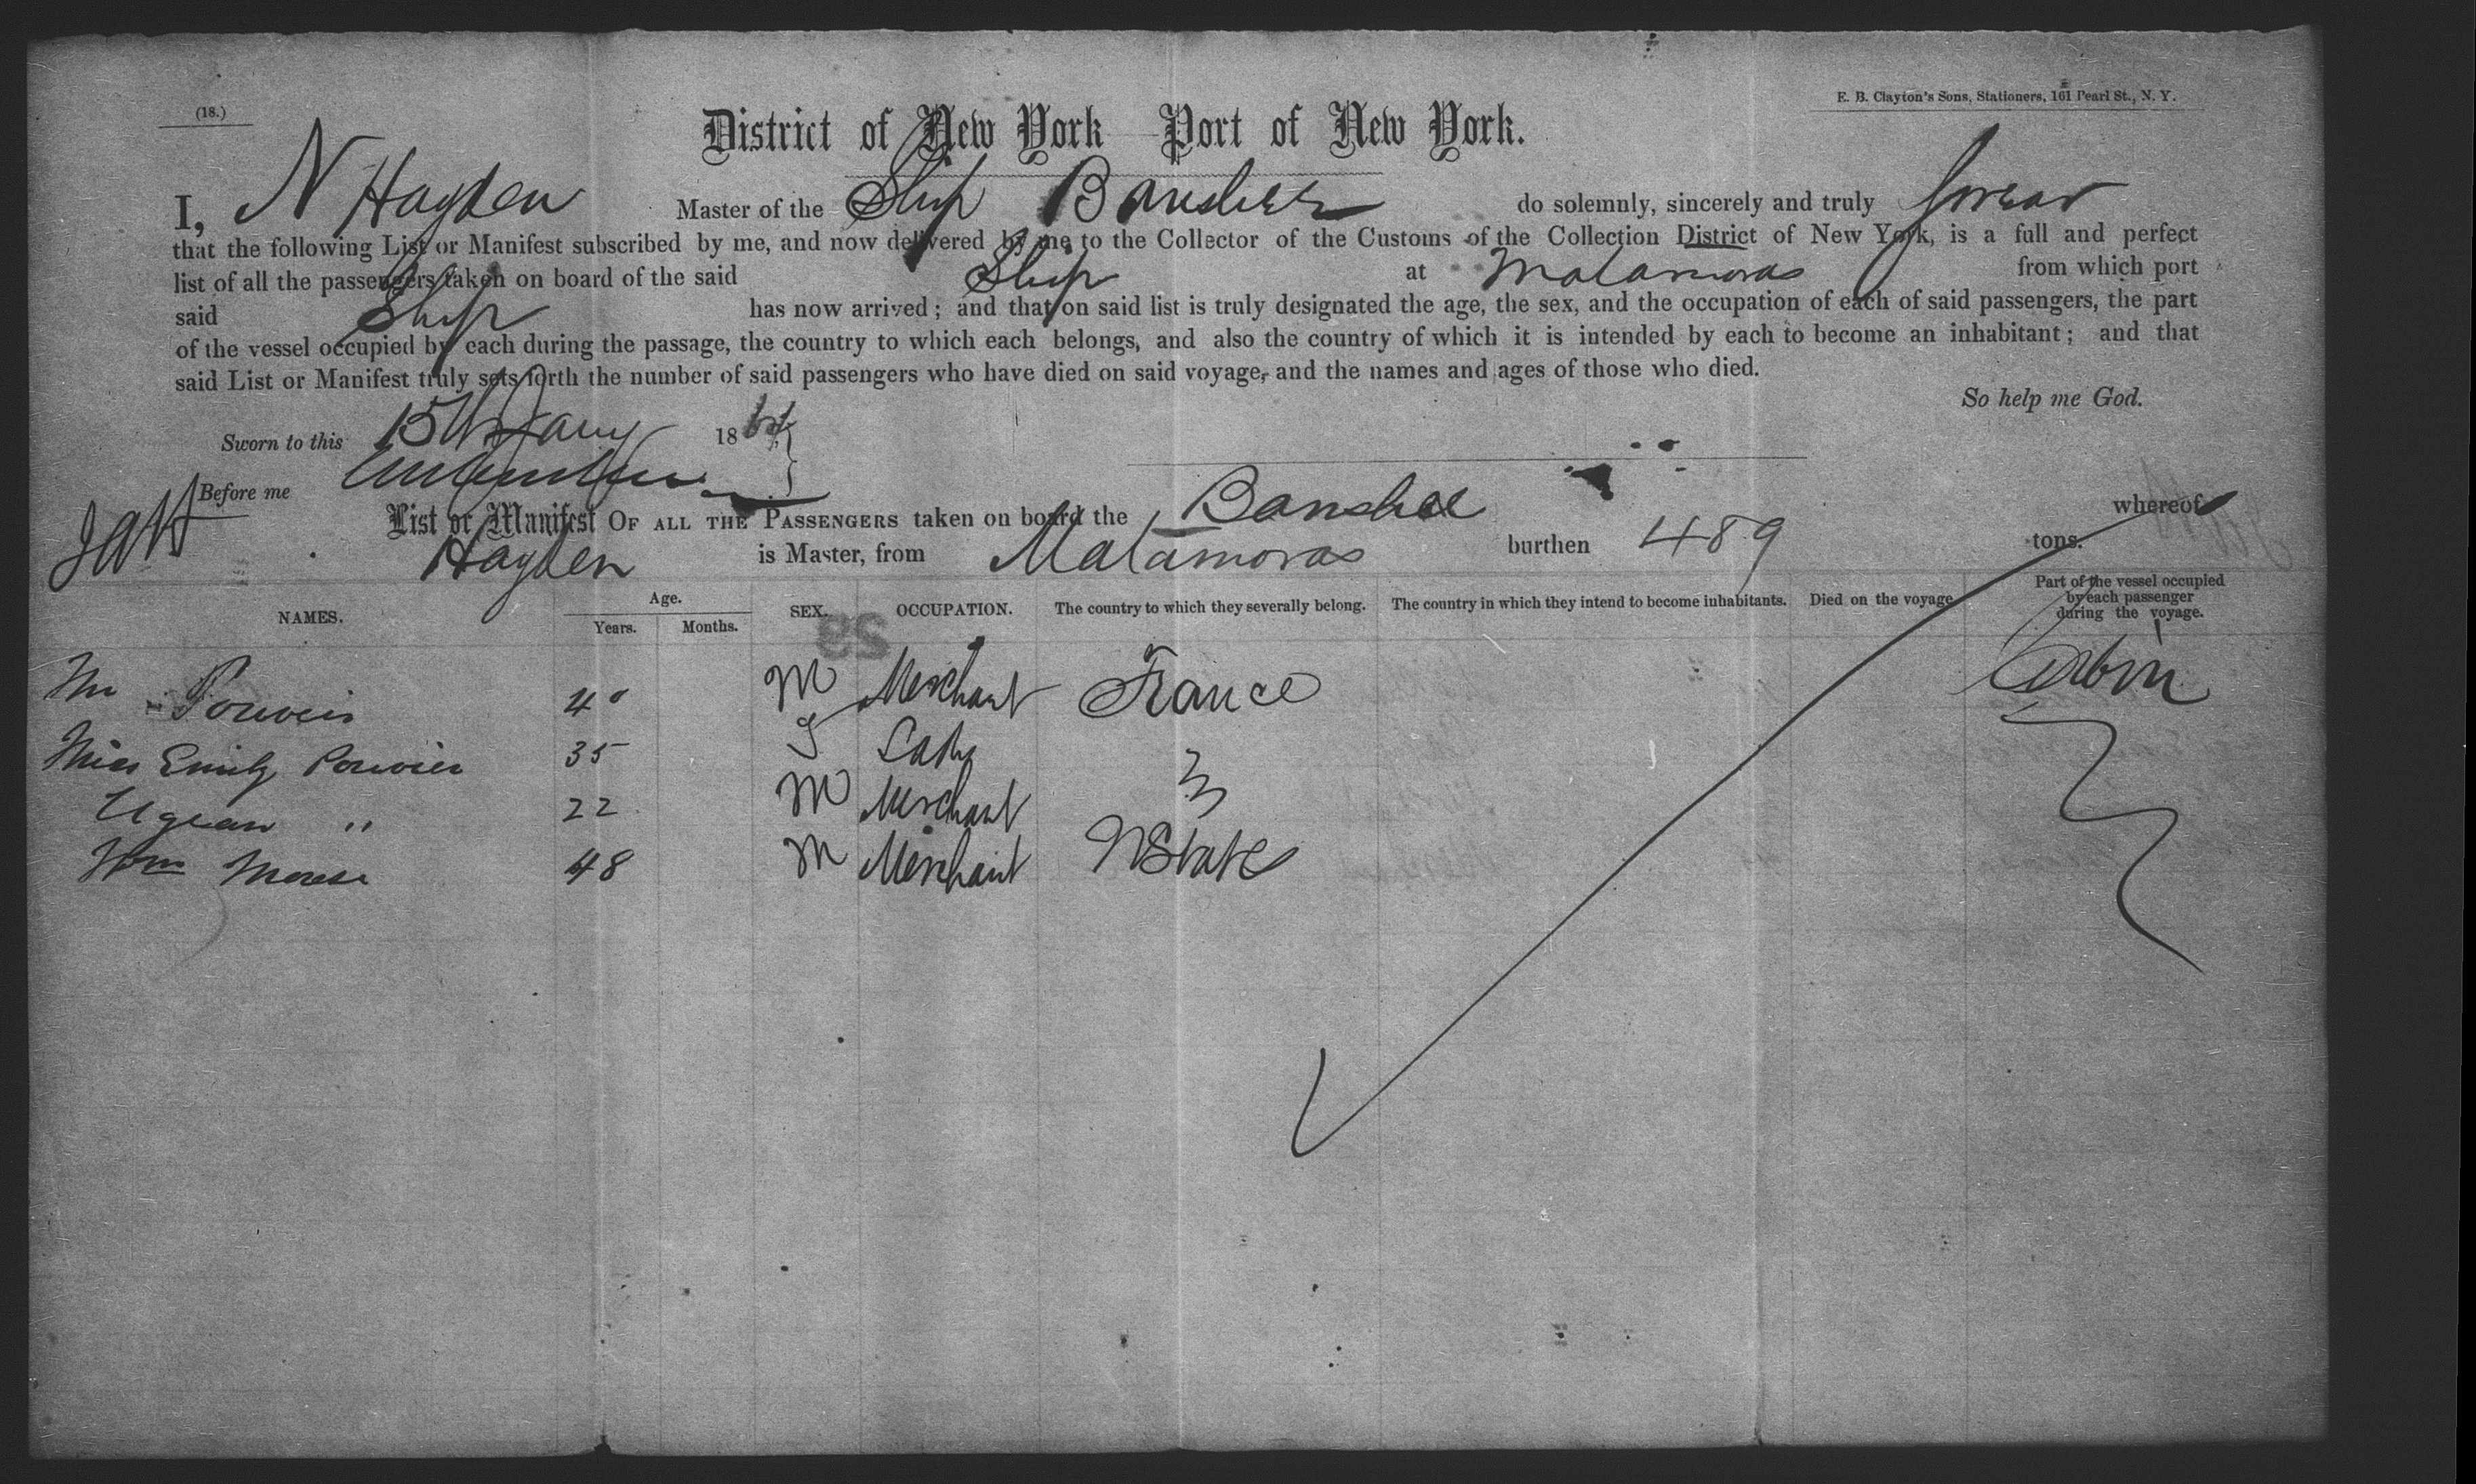 (18.)
E. B. Clayton's Sons, Stationers, 161 Pearl St., N. Y.
District of New York Port of New York.
I, N Hayden Master of the Ship Banshee do solemnly, sincerely and truly swear
that the following List or Manifest subscribed by me, and now delivered by me to the Collector of the Customs of the Collection District of New York, is a full and perfect
list of all the passengers taken on board of the said Ship at Matamoras from which port
said Ship has now arrived; and that on said list is truly designated the age, the sex, and the occupation of each of said passengers, the part
of the vessel occupied by each during the passage, the country to which each belongs, and also the country of which it is intended by each to become an inhabitant; and that
said List or Manifest truly sets forth the number of said passengers who have died on said voyage, and the names and ages of those who died.
So help me God.
Sworn to this 15th Jany 186
Before me
List or Manifest OF ALL THE PASSENGERS taken on board the Banshee whereof
Hayden is Master, from Matamoras burthen 489 tons.
NAMES. Age. Years. Months. SEX. OCCUPATION. The country to which they severally belong. The country in which they intend to become inhabitants. Died on the voyage. Part of the vessel occupied by each passenger during the voyage.
Mr 40 M Merchant France Cabin
Miss Emily 35 Lady
" 22 M Merchant
Wm 48 M Merchant States